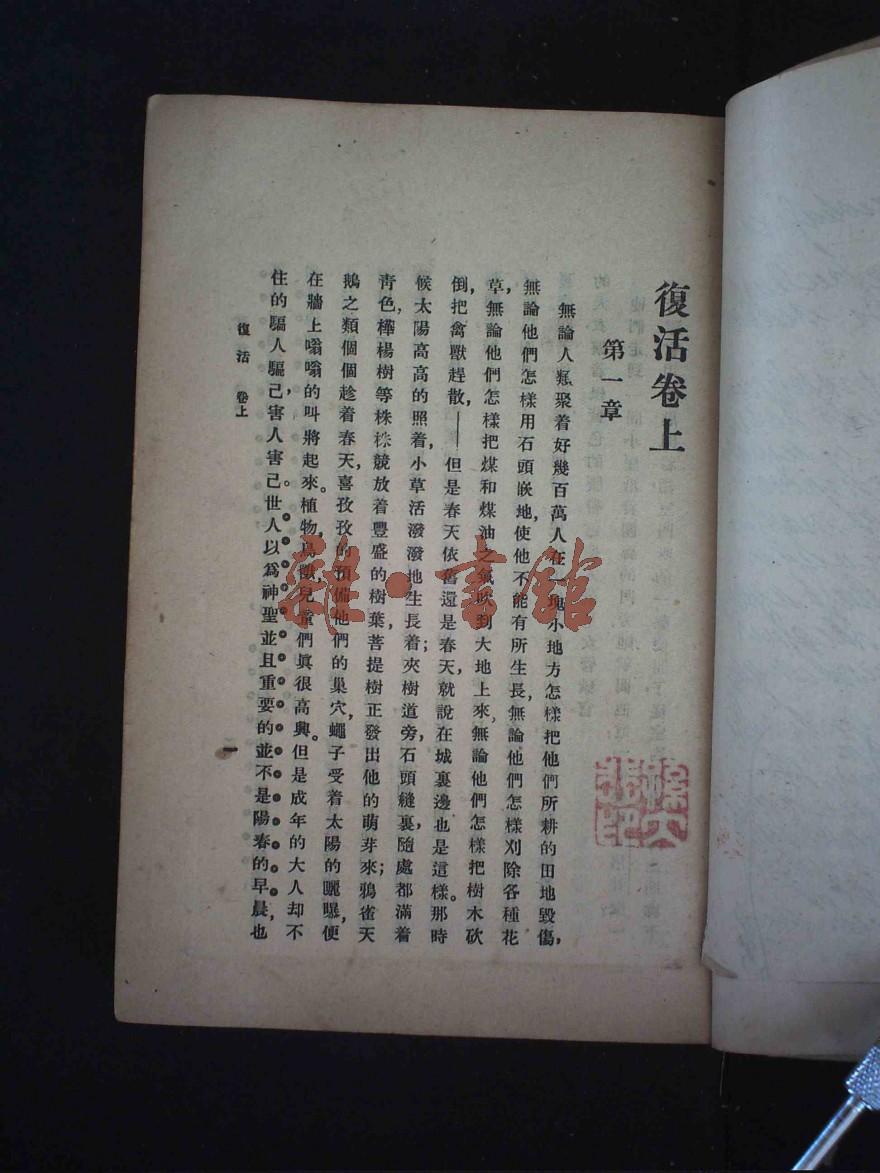 復活卷上
第一章
無論人類聚着好幾百萬人在一塊小地方怎樣把他們所耕的田地毀傷，
無論他們怎樣用石頭嵌地，使他不能有所生長，無論他們怎樣刈除各種花
草，無論他們怎樣把煤和煤油之氣吹到大地上來，無論他們怎樣把樹木砍
倒，把禽獸趕散，——但是春天依舊還是春天，就說在城裏邊也是這樣。那時
候太陽高高的照着，小草活潑潑地生長着；夾樹道旁，石頭縫裏，隨處都滿着
青色，樺楊樹等株株競放着豐盛的樹葉，菩提樹正發出他的萌芽來；鴉雀天
鵝之類個個趁着春天，喜孜孜的預備他們的巢穴，蠅子受着太陽的曬曝，便
在牆上嗡嗡的叫將起來。植物，鳥獸，兒童們眞很高興。但是成年的大人却不
住的騙人騙己，害人害己。世人以爲神聖並且重要的並不是陽春的早晨，也
復活 卷上
一
雜·書館